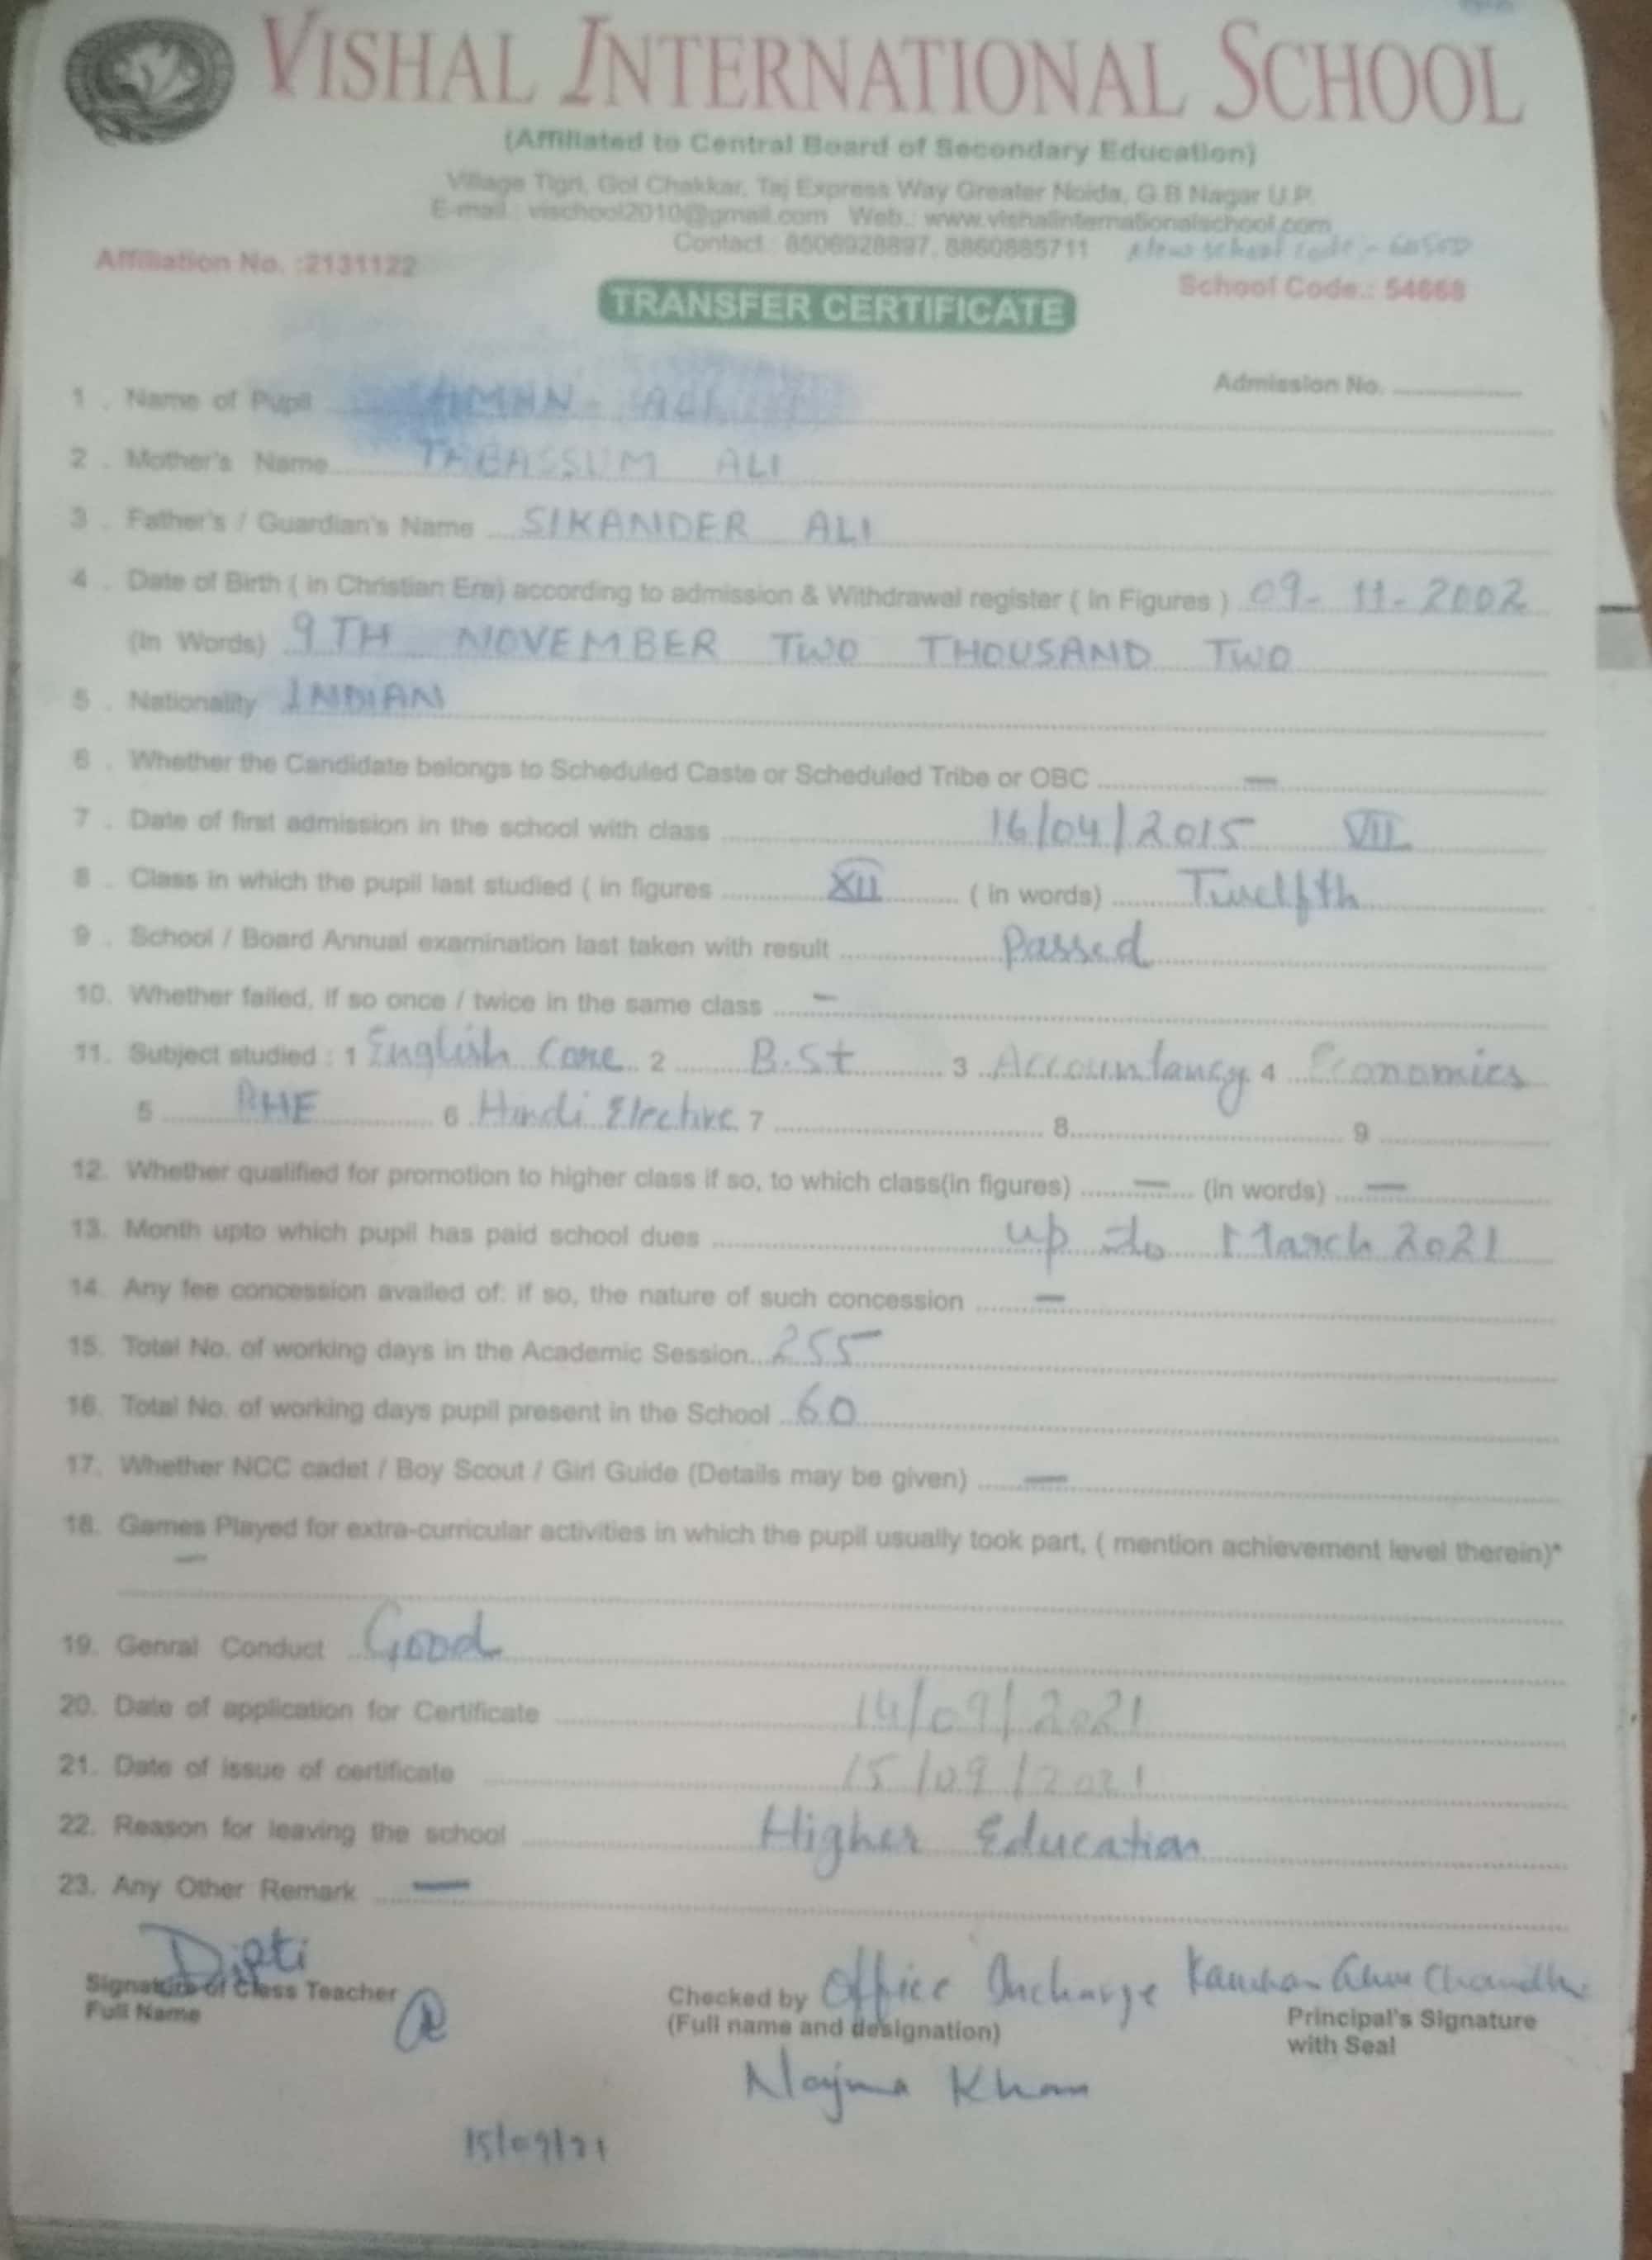 VISHAL INTERNATIONAL SCHOOL
(Affiliated to Central Board of Secondary Education)
Village Tigri, Gol Chakkar, Taj Express Way Greater Noida, G.B Nagar U.P.
E-mail : vischool2010@gmail.com Web.: www.vishalinternationalschool.com
Contact : 8506928897, 8860885711 New school code -
Affiliation No. :2131122 School Code.: 54668
TRANSFER CERTIFICATE
Admission No.
1 . Name of Pupil AMAN ALI
2 . Mother's Name TABASSUM ALI
3 . Father's / Guardian's Name SIKANDER ALI
4 . Date of Birth ( in Christian Era) according to admission & Withdrawal register ( In Figures ) 09-11-2002
(In Words) 9TH NOVEMBER TWO THOUSAND TWO
5 . Nationality INDIAN
6 . Whether the Candidate belongs to Scheduled Caste or Scheduled Tribe or OBC —
7 . Date of first admission in the school with class 16/04/2015 VII
8 . Class in which the pupil last studied ( in figures XII ( in words) Twelfth
9 . School / Board Annual examination last taken with result Passed
10. Whether failed, if so once / twice in the same class —
11. Subject studied : 1 English Core 2 B.St 3 Accountancy 4 Economics
5 PHE 6 Hindi Elective 7 8 9
12. Whether qualified for promotion to higher class if so, to which class(in figures) — (in words) —
13. Month upto which pupil has paid school dues up to March 2021
14. Any fee concession availed of: if so, the nature of such concession —
15. Total No. of working days in the Academic Session 255
16. Total No. of working days pupil present in the School 60
17. Whether NCC cadet / Boy Scout / Girl Guide (Details may be given) —
18. Games Played for extra-curricular activities in which the pupil usually took part, ( mention achievement level therein)*
—
19. Genral Conduct Good
20. Date of application for Certificate 14/09/2021
21. Date of issue of certificate 15/09/2021
22. Reason for leaving the school Higher Education
23. Any Other Remark —
Dipti
Signature of Class Teacher Checked by Office Incharge
Full Name (Full name and designation) Principal's Signature
with Seal
Najma Khan
15/09/21